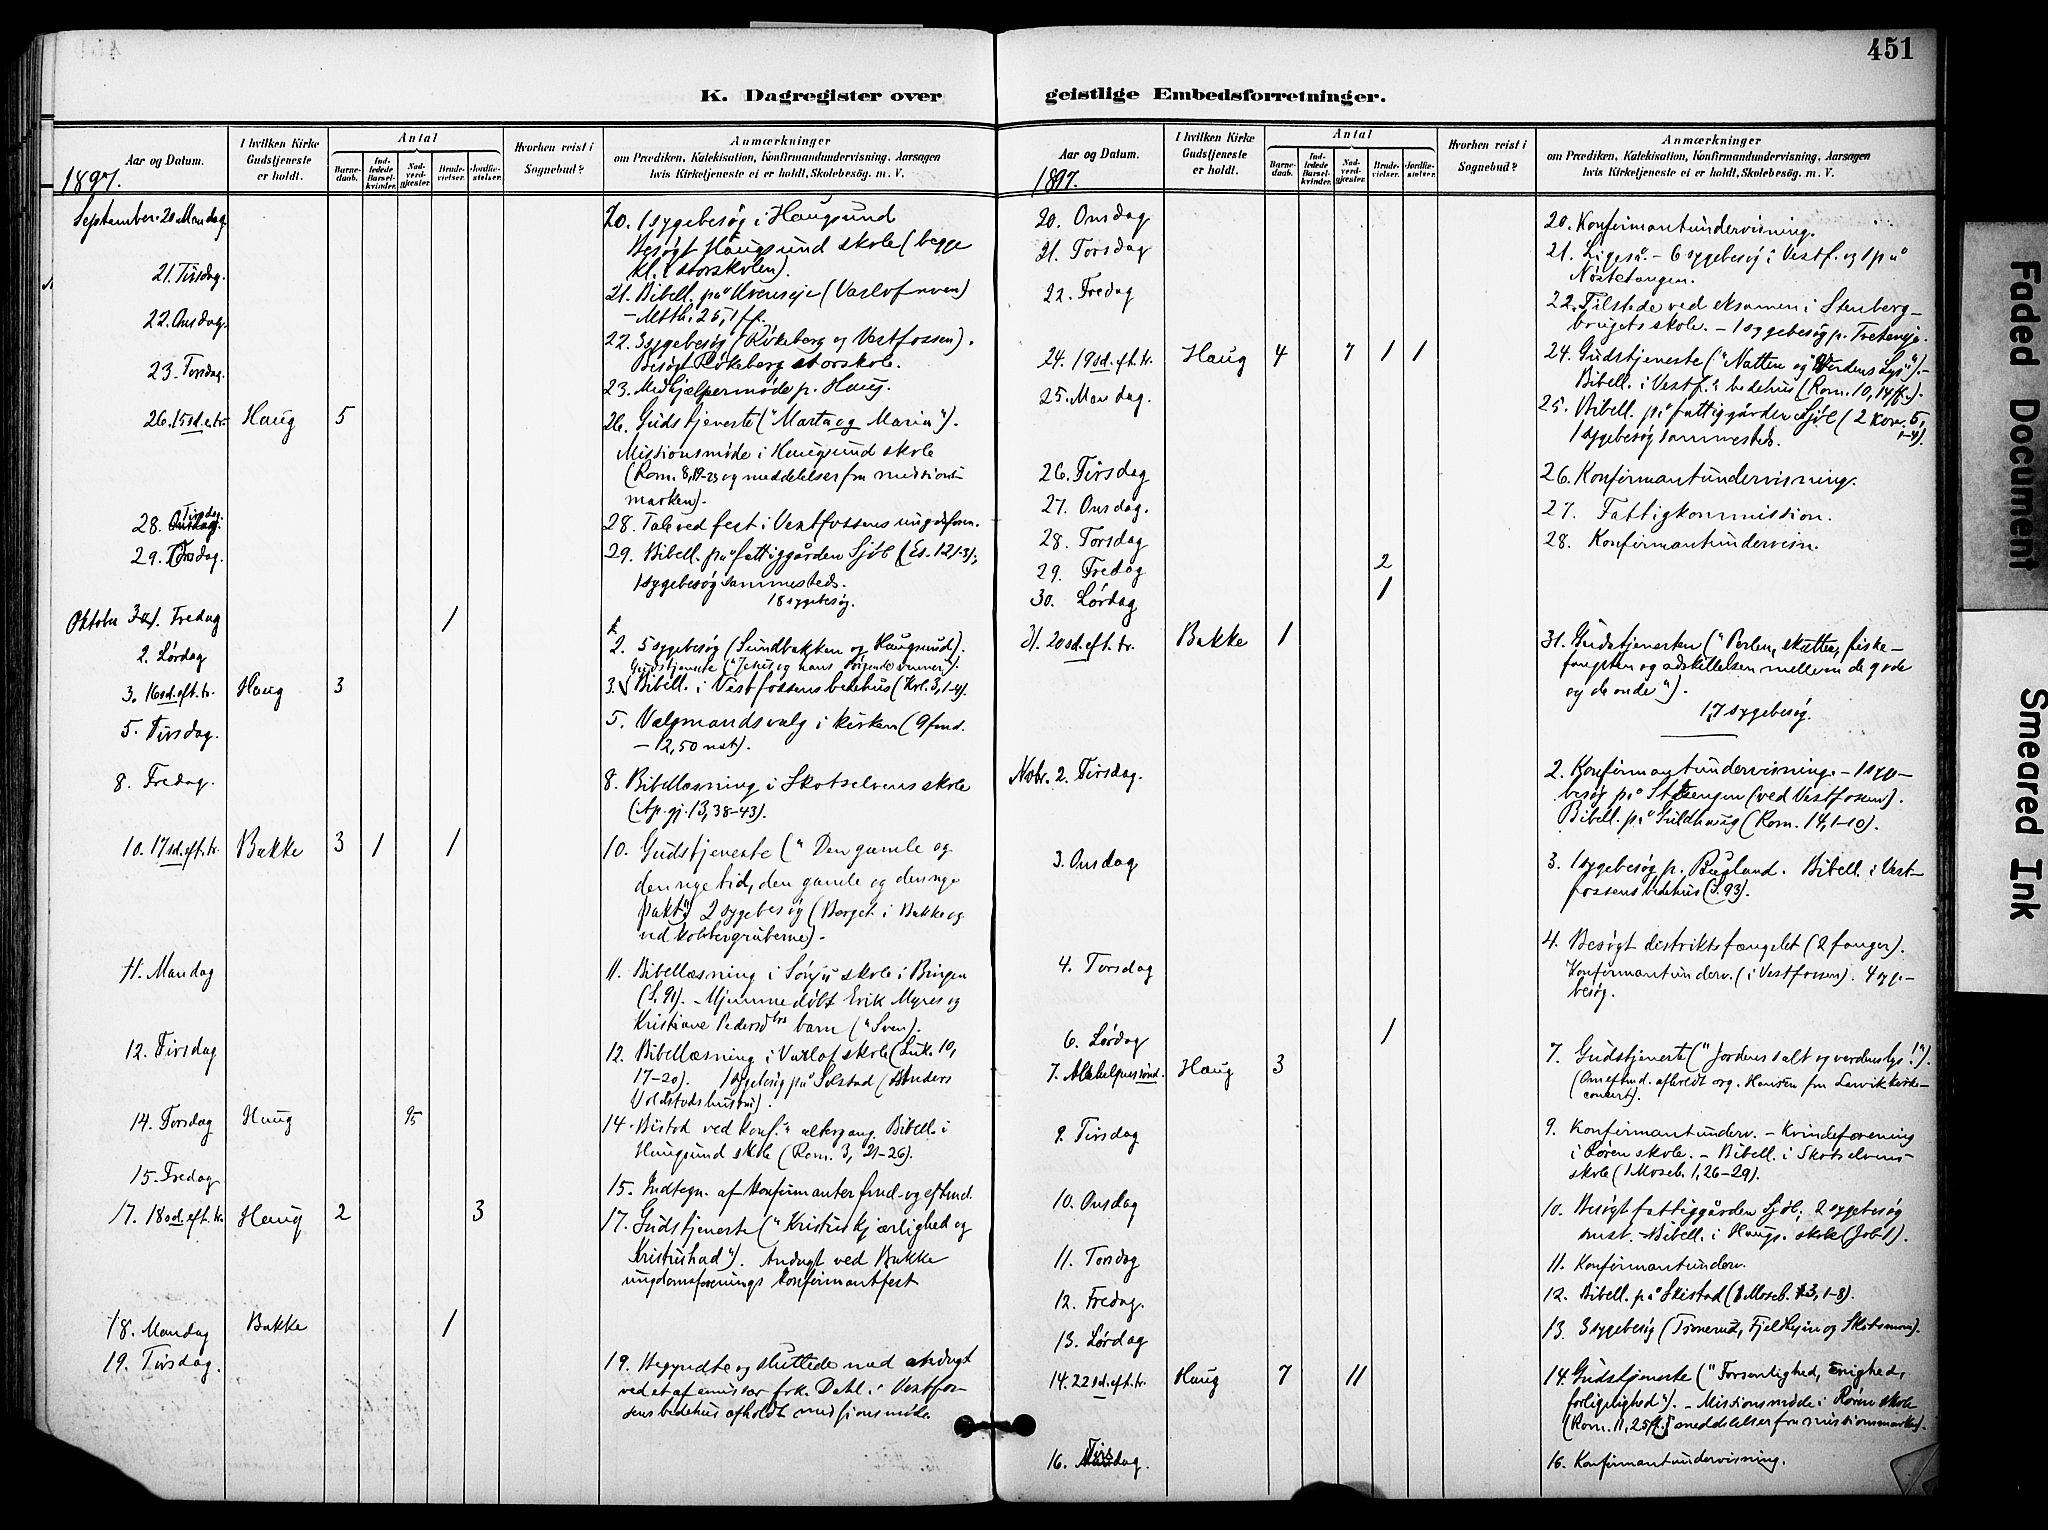 451
K. Dagregister over
geistlige Embedsforretninger.
Aar og Datum.
I hvilken Kirke Gudstjeneste er holdt.
Antal
Barnedaab.
Indledede Barselkvinder.
Nadverdgjester.
Brudevielser.
Jordfæstelser.
Hvorhen reist i Sognebud?
Anmærkninger
om Prædiken, Katekisation, Konfirmandundervisning, Aarsagen
hvis Kirketjeneste ei er holdt, Skolebesøg. m. V.
1897.
September 20 Mandag 20. 1 sygebesøg i Haugsund
Besøgt Haugsund skole (begge
kl. i storskolen).
21. Tirsdag. 21. Bibell. på
- Matth. 25, 1 ff.
22. Onsdag. 22. 3 sygebesøg (Røkeberg og Vestfossen).
Besøgt Røkeberg storskole.
23. Torsdag 23. Medhjælpermøde p. Haug.
26. 15 sd. e. tr. Haug 5 26. Gudstjeneste ("Marta og Maria").
Missionsmøde i Haugsund skole
(Rom. 8, 19-23 og meddelelser fra missions-
marken).
28. Tirsdag 28. Tale ved fest i Vestfossens ungdsforen.
29. Onsdag. 29. Bibell. på fattiggården Sjøl (Es. 12 1-3);
1 sygebesøg sammesteds.
18 sygebesøg.
Oktober 1. Fredag 1
2. Lørdag 2. 5 sygebesøg (Sundbakken og Haugsund).
Gudstjeneste ("Jesus og hans sørgende venner").
3. 16 sd. eft. tr. Haug 3 3. Bibell. i Vestfossens bedehus (Kol. 3, 1-4).
5. Tirsdag. 5. Valgmandsvalg i kirken (9 fmd.
- 12,50 nat).
8. Fredag. 8. Bibellæsning i Skotselvens skole
(Ap. gj. 13, 38-43).
10. 17 sd. eft. tr. Bakke 3 1 1 10. Gudstjeneste ("Den gamle og
den nye tid, den gamle og den nye
pakt"). 2 sygebesøg (Berget i Bakke og
ved kobbergruberne).
11. Mandag 11. Bibellæsning i skole i Bingen
(S. 91). - Hjemmedøbt Erik Myres og
Kristiane Pedersdtrs barn ("Sven).
12. Tirsdag 12. Bibellæsning i Varlof skole (Luk. 10,
17-20). 1 sygebesøg på Solstad (Anders
14. Torsdag Haug 95 14. Bistod ved konf.s altergang. Bibell. i
Haugsund skole (Rom. 3, 21-26).
15. Fredag 15. Indtegn. af konfirmanter fmd- og eftmd.
17. 18 sd. eft. tr. Haug 2 3 17. Gudstjeneste ("Kristuskjærlighed og
Kristushad"). Andagt ved Bakke
ungdomsforenings konfirmantfest
18. Mandag Bakke 1
19. Tirsdag. 19. Begyndte og sluttede med andagt
ved et af emissær frk. Dahl i Vestfos-
sens bedehus afholdt missionsmøde.
Aar og Datum.
I hvilken Kirke Gudstjeneste er holdt.
Antal
Barnedaab.
Indledede Barselkvinder.
Nadverdgjester.
Brudevielser.
Jordfæstelser.
Hvorhen reist i Sognebud?
Anmærkninger
om Prædiken, Katekisation, Konfirmandundervisning, Aarsagen
hvis Kirketjeneste ei er holdt, Skolebesøg. m. V.
1897.
20. Onsdag 20. Konfirmantundervisning.
21. Torsdag 21. Ligeså. - 6 sygebesøg i Vestf. og 1 på
Nøstetangen.
22. Fredag 22. Tilstede ved eksamen i Stenberg-
brugets skole. - 1 sygebesøg p.
24. 19 sd. eft. tr. Haug 4 7 1 1 24. Gudstjeneste ("Natten og Verdens Lys"). -
Bibell. i Vestf.s bedehus (Rom. 10, 14 ff.).
25. Mandag. 25. Bibell. på fattiggården Sjøl (2 Kor. 5,
1-4). 1 sygebesøg sammesteds.
26. Tirsdag 26. Konfirmantundervisning.
27. Onsdag. 27. Fattigkommission.
28. Torsdag 28. Konfirmantundervisn.
29. Fredag 2
30. Lørdag 1
31. 20 sd. eft. tr. Bakke 1 31. Gudstjenesten ("Perlen, skatten, fiske-
fangsten og adskillelsen mellem de gode
og de onde").
17 sygebesøg.
Novbr. 2. Tirsdag. 2. Konfirmantundervisning. - 1 syge-
besøg på (ved Vestfossen).
Bibell. på Guldhaug (Rom. 14, 1-10).
3. Onsdag 3. 1 sygebesøg p. Bugland. Bibell. i Vest-
fossens bedehus (S. 93).
4. Torsdag 4. Besøgt distriktsfængslet (2 fanger).
Konfirmantunderv. (i Vestfossen). 4 syge-
besøg.
6. Lørdag 1
7. Allehelgenssønd. Haug 3 7. Gudstjeneste ("Jordens salt og verdens lys!").
(Om eftmd. afholdt org. Hansen fra Larvik kirke-
concert).
9. Tirsdag 9. Konfirmantunderv. - Kvindeforening
i Røren skole. - Bibell. i Skotselvens-
skole (1 Moseb. 1, 26-29).
10. Onsdag 10. Besøgt fattiggården Sjøl; 2 sygebesøg
smst. - Bibell. i Haugs. skole (Job 1).
11. Torsdag 11. Konfirmantunderv.
12. Fredag. 12. Bibell. på Skistad (1 Moseb. 3, 1-8).
13. Lørdag 13. 3 sygebesøg
14. 22 sd. eft. tr. Haug 7 11 14. Gudstjeneste ("Forsonlighed, Enighed,
forligelighed"). - Missionsmøde i Røren skole
(Rom. 11, 25 ff.; meddelelser fra missionsmarken).
16. Tirsdag. 16. Konfirmantundervisning.
Faded Document
Smeared Ink